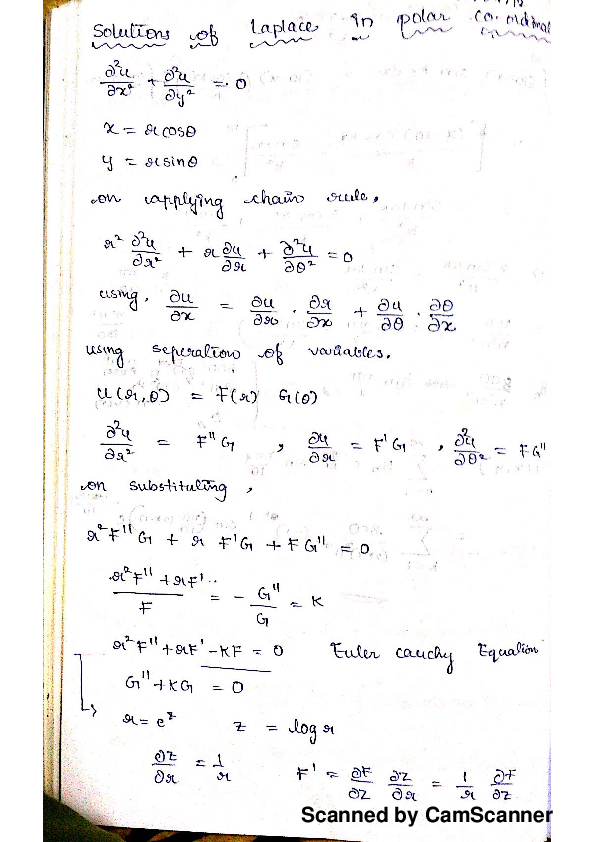 Solutions of Laplace in polar co-ordinat
∂²u/∂x² + ∂²u/∂y² = 0
x = rcosθ
y = rsinθ
on applying chain rule,
r² ∂²u/∂r² + r ∂u/∂r + ∂²u/∂θ² = 0
using, ∂u/∂x = ∂u/∂r . ∂r/∂x + ∂u/∂θ . ∂θ/∂x
using seperation of variables.
u(r,θ) = F(r) G(θ)
∂²u/∂r² = F''G , ∂u/∂r = F'G , ∂²u/∂θ² = FG''
on substituting ,
r²F''G + r F'G + FG'' = 0
(r²F'' + rF')/F = - G''/G = K
r²F'' + rF' - KF = 0 Euler cauchy Equation
G'' + KG = 0
r = e^z z = log r
∂z/∂r = 1/r F' = ∂F/∂z ∂z/∂r = 1/r ∂F/∂z
Scanned by CamScanner